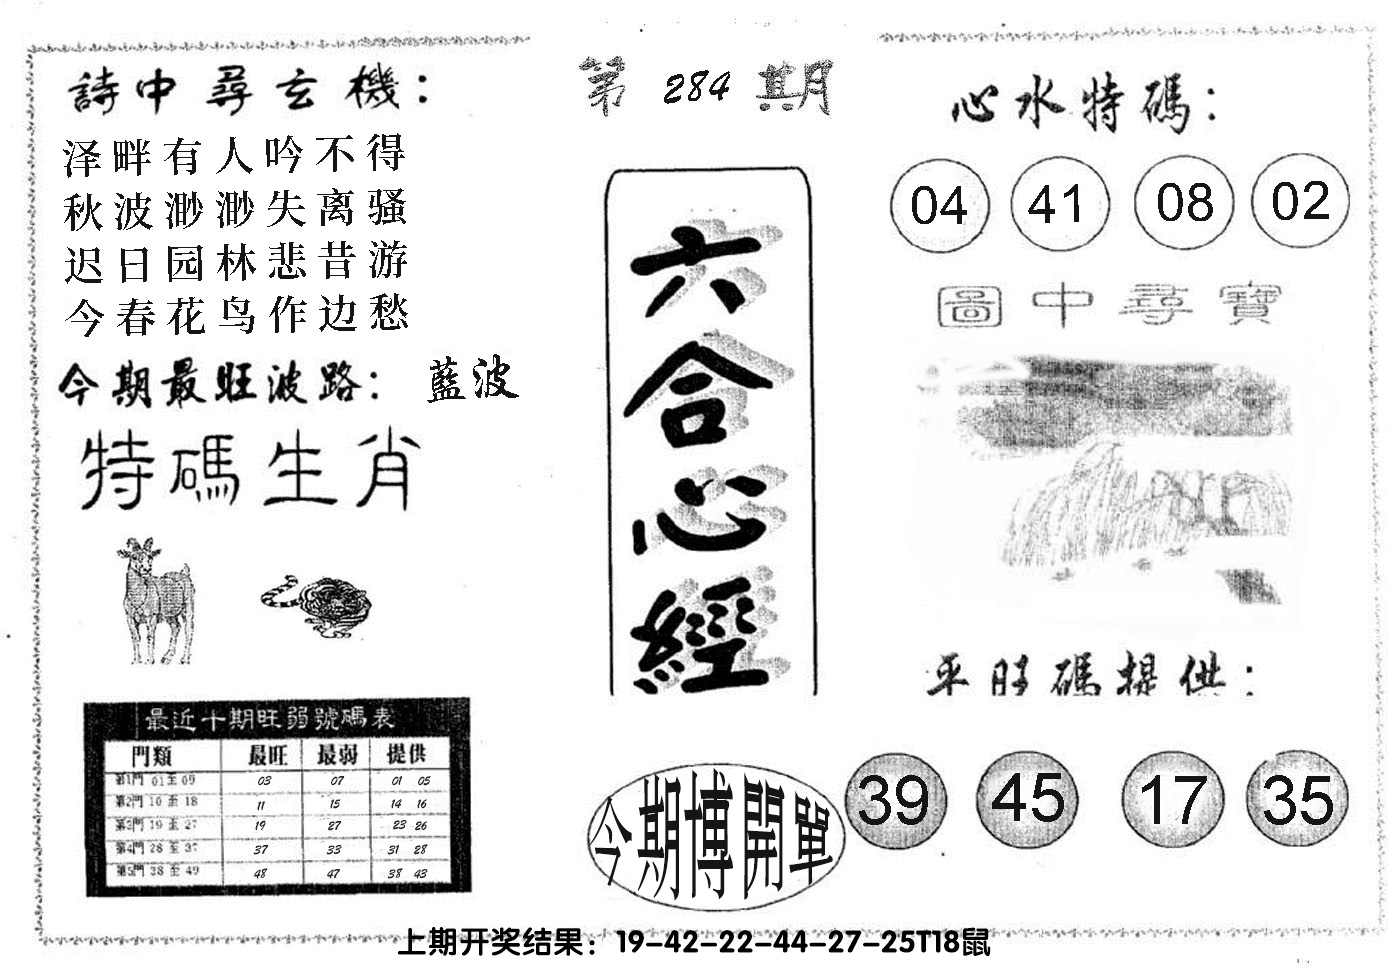 詩中尋玄機：
泽畔有人吟不得
秋波渺渺失离骚
迟日园林悲昔游
今春花鸟作边愁
今期最旺波路： 藍波
特碼生肖
最近十期旺弱號碼表
門類 最旺 最弱 提供
第1門 01至09 03 07 01 05
第2門 10至18 11 15 14 16
第3門 19至27 19 27 23 26
第4門 28至37 37 33 31 28
第5門 38至49 48 47 38 43
第 284 期
六合心經
今期博開單
心水特碼：
04 41 08 02
圖中尋寶
平旺碼提供：
39 45 17 35
上期开奖结果：19-42-22-44-27-25T18鼠